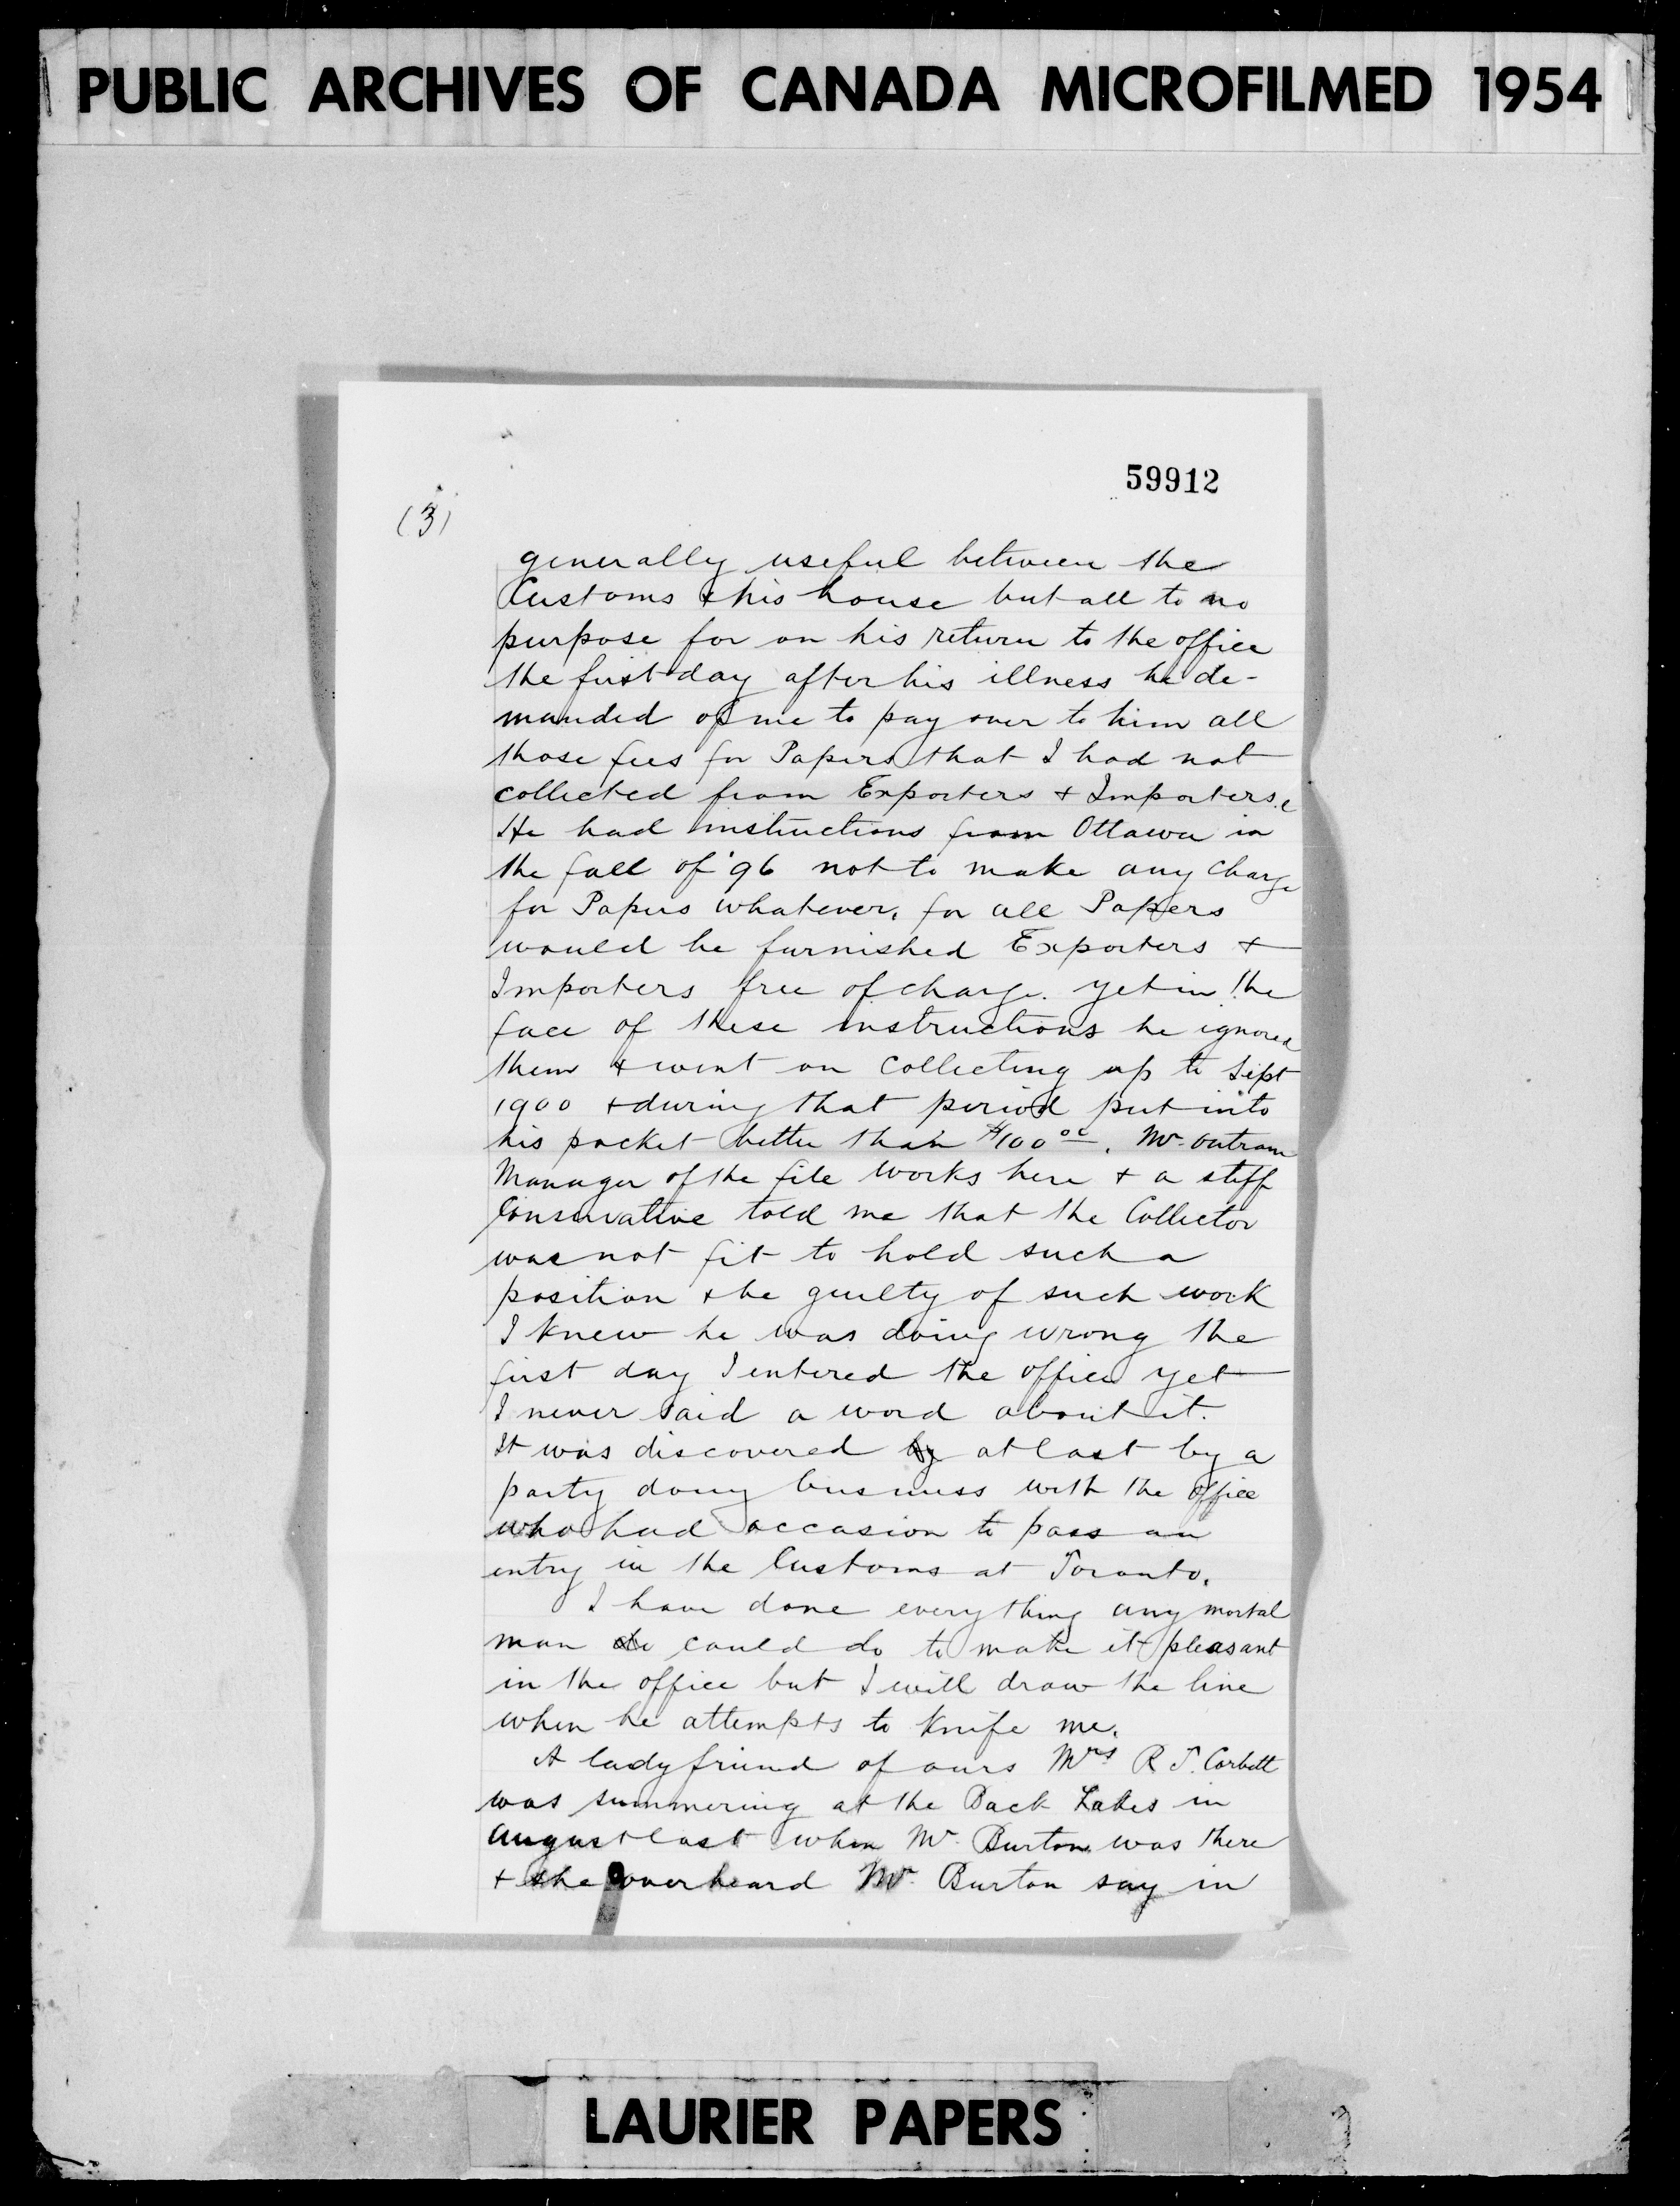 PUBLIC ARCHIVES OF CANADA MICROFILMED 1954
59912
(3)
generally useful between the
Customs & his house but all to no
purpose for on his return to the office
the first day after his illness he de-
manded of me to pay over to him all
those fees for Papers that I had not
collected from Exporters & Importers.
He had instructions from Ottawa in
the fall of '96 not to make any charge
for Papers whatever, for all Papers
would be furnished Exporters &
Importers free of charge. yet in the
face of these instructions he ignored
them & went on collecting up to Sept
1900 & during that period put into
his pocket better than $100 00. Mr. Outram
Manager of the file works here & a stiff
Conservative told me that the Collector
was not fit to hold such a
position & be guilty of such work
I knew he was doing wrong the
first day I entered the office yet
I never said a word about it.
It was discovered by at last by a
party doing business with the office
who had occasion to pass an
entry in the Customs at Toronto.
I have done everything any mortal
man do could do to make it pleasant
in the office but I will draw the line
when he attempts to knife me.
A lady friend of ours Mrs R. T. Corbett
was summering at the Back Lakes in
August last when Mr. Burton was there
& she overheard Mr. Burton say in
LAURIER PAPERS